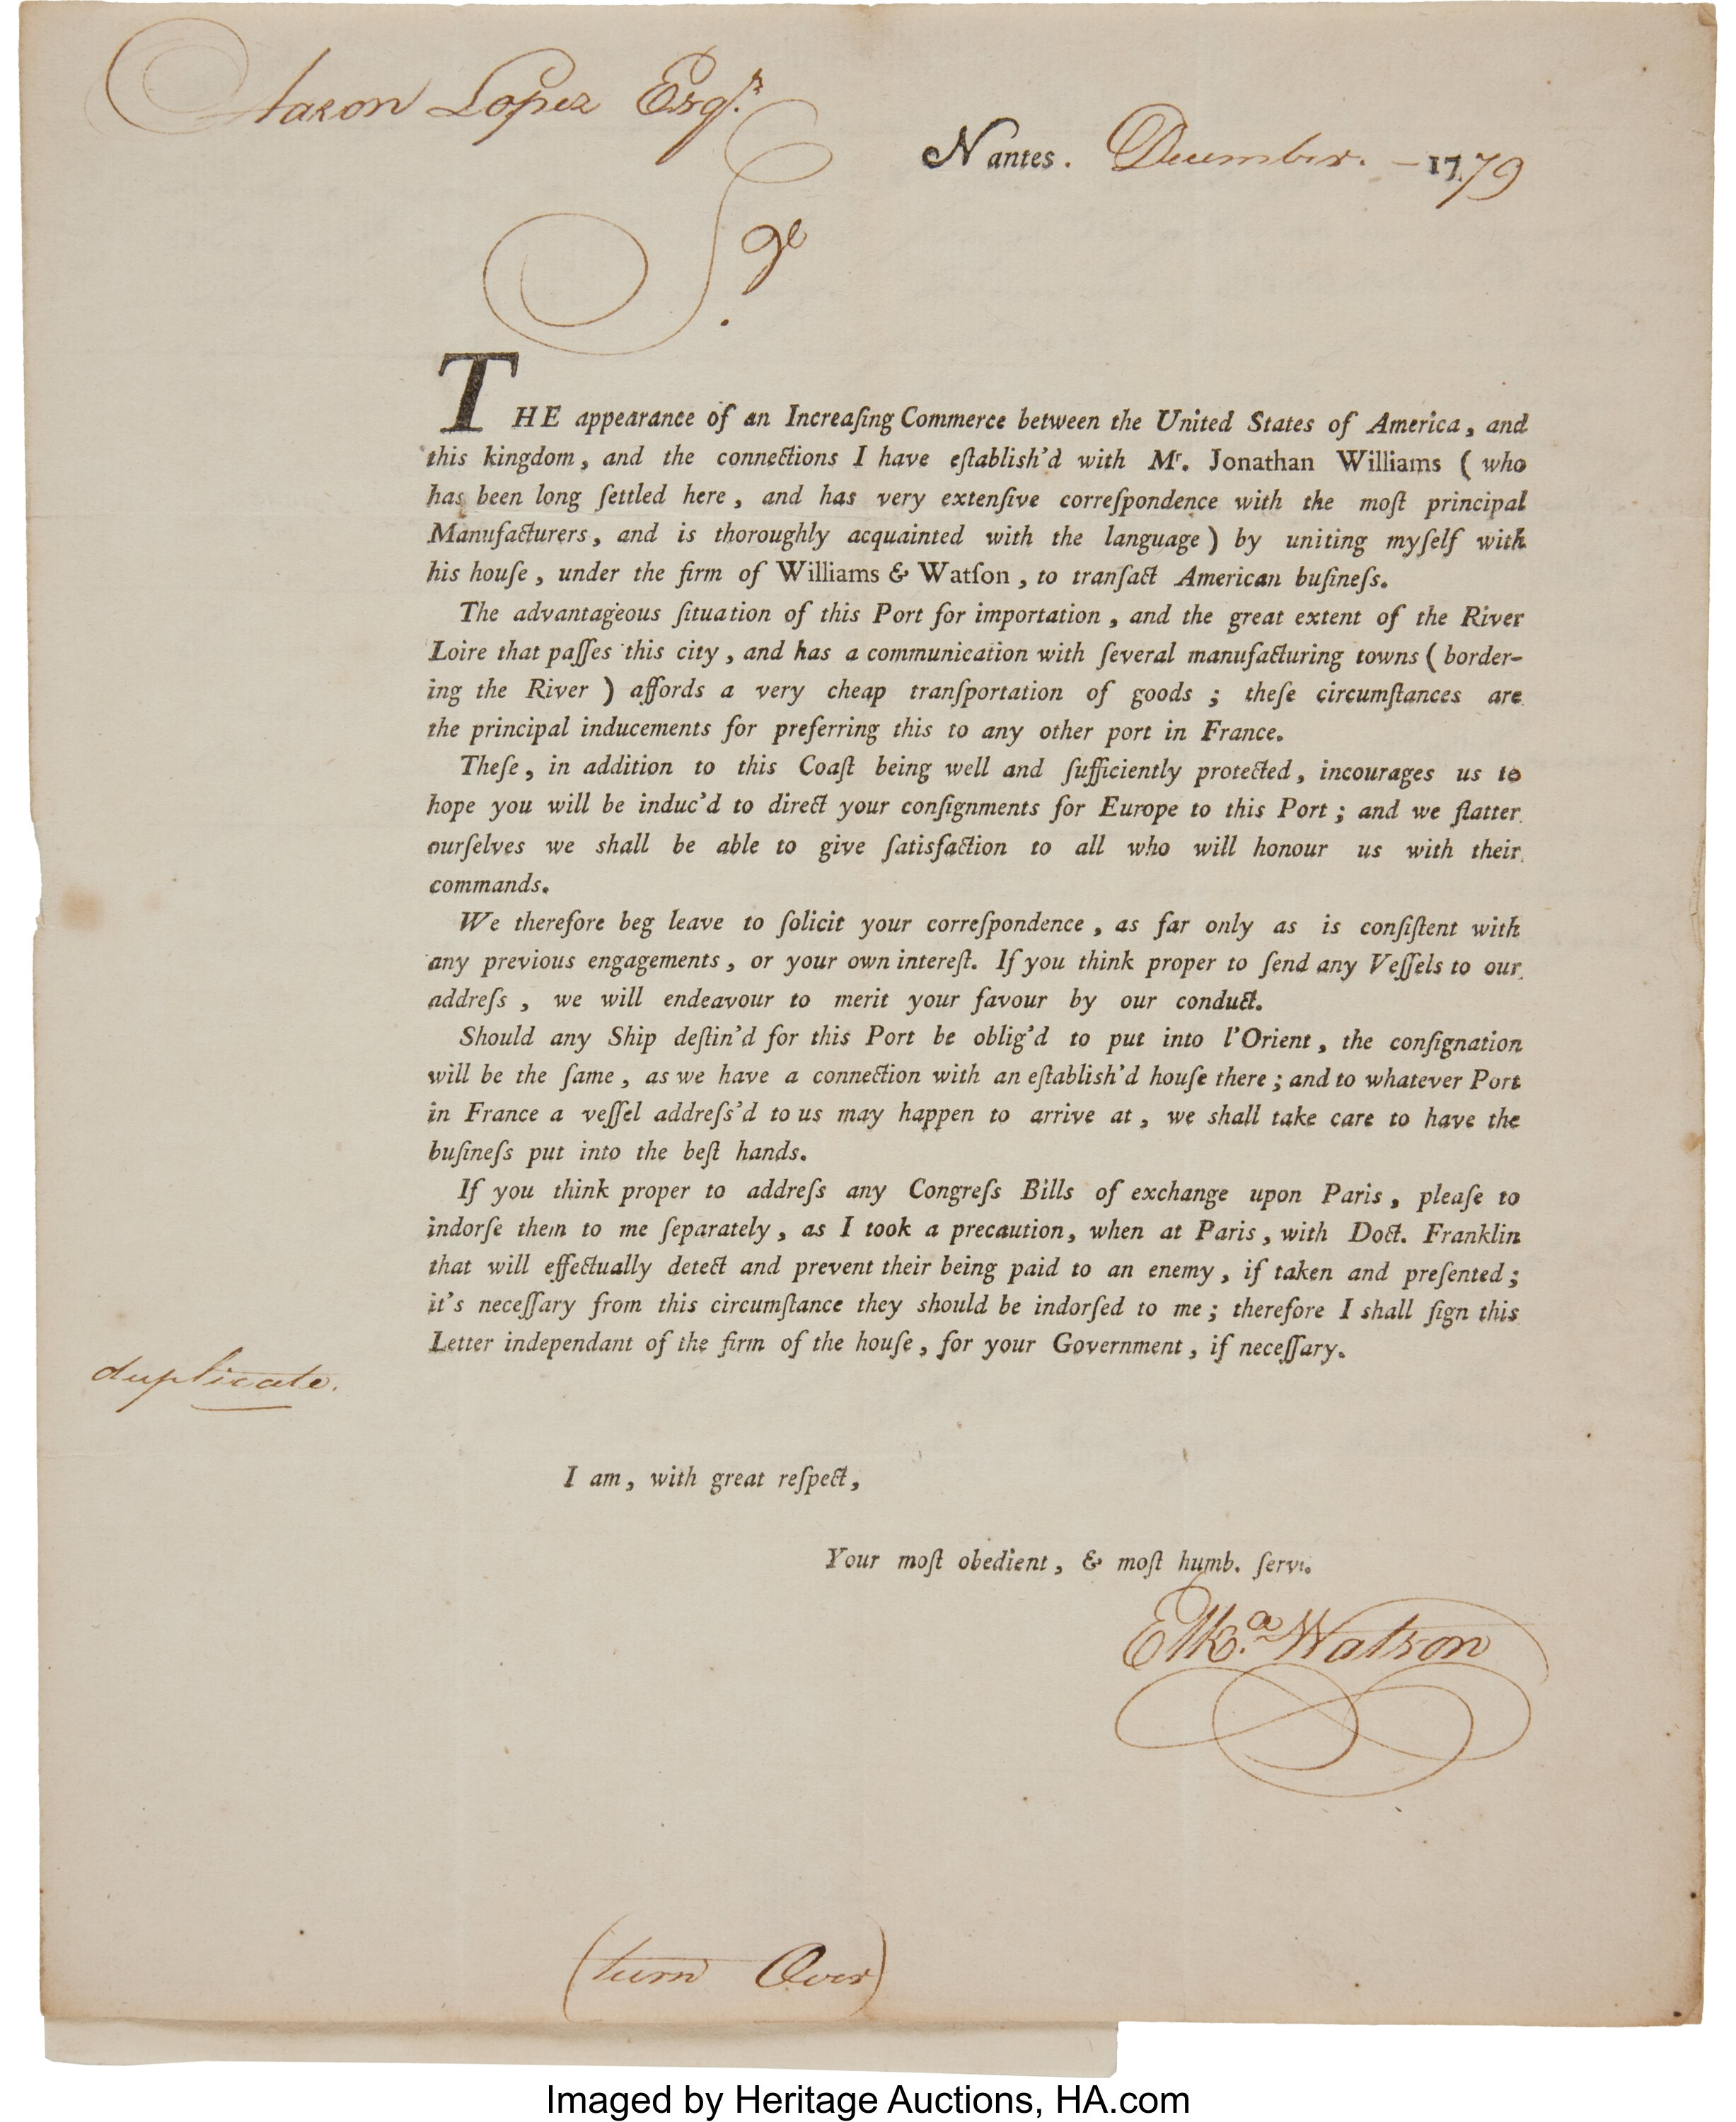 Aaron Lopez Esqr.
Nantes. December. – 1779
Sr.
THE appearance of an Increaſing Commerce between the United States of America, and
this kingdom, and the connections I have eſtabliſh'd with Mr. Jonathan Williams (who
has been long ſettled here, and has very extenſive correſpondence with the moſt principal
Manufacturers, and is thoroughly acquainted with the language) by uniting myſelf with
his houſe, under the firm of Williams & Watſon, to tranſact American buſineſs.
The advantageous ſituation of this Port for importation, and the great extent of the River
Loire that paſſes this city, and has a communication with ſeveral manufacturing towns (border-
ing the River) affords a very cheap tranſportation of goods; theſe circumſtances are
the principal inducements for preferring this to any other port in France.
Theſe, in addition to this Coaſt being well and ſufficiently protected, incourages us to
hope you will be induc'd to direct your conſignments for Europe to this Port; and we flatter
ourſelves we shall be able to give ſatisfaction to all who will honour us with their
commands.
We therefore beg leave to ſolicit your correſpondence, as far only as is conſiſtent with
any previous engagements, or your own intereſt. If you think proper to ſend any Veſſels to our
addreſs, we will endeavour to merit your favour by our conduct.
Should any Ship deſtin'd for this Port be oblig'd to put into l'Orient, the conſignation
will be the ſame, as we have a connection with an eſtabliſh'd houſe there; and to whatever Port
in France a veſſel addreſs'd to us may happen to arrive at, we shall take care to have the
buſineſs put into the beſt hands.
If you think proper to addreſs any Congreſs Bills of exchange upon Paris, pleaſe to
indorſe them to me ſeparately, as I took a precaution, when at Paris, with Doct. Franklin
that will effectually detect and prevent their being paid to an enemy, if taken and preſented;
it's neceſſary from this circumſtance they should be indorſed to me; therefore I shall ſign this
Letter independant of the firm of the houſe, for your Government, if neceſſary.
duplicate.
I am, with great reſpect,
Your moſt obedient, & moſt humb. ſerv.
Elka. Watson
(turn Over)
Imaged by Heritage Auctions, HA.com